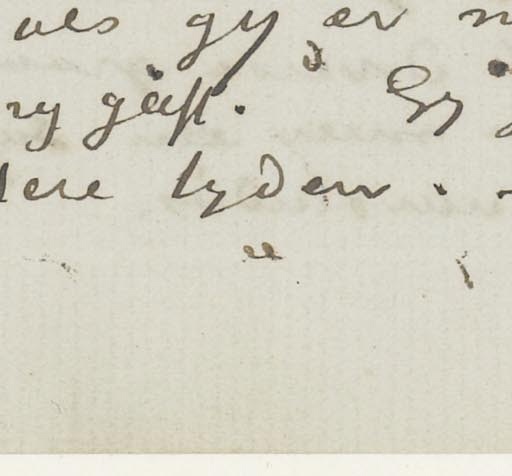 als gy er
ry gaft. Gy
dere tyden. -